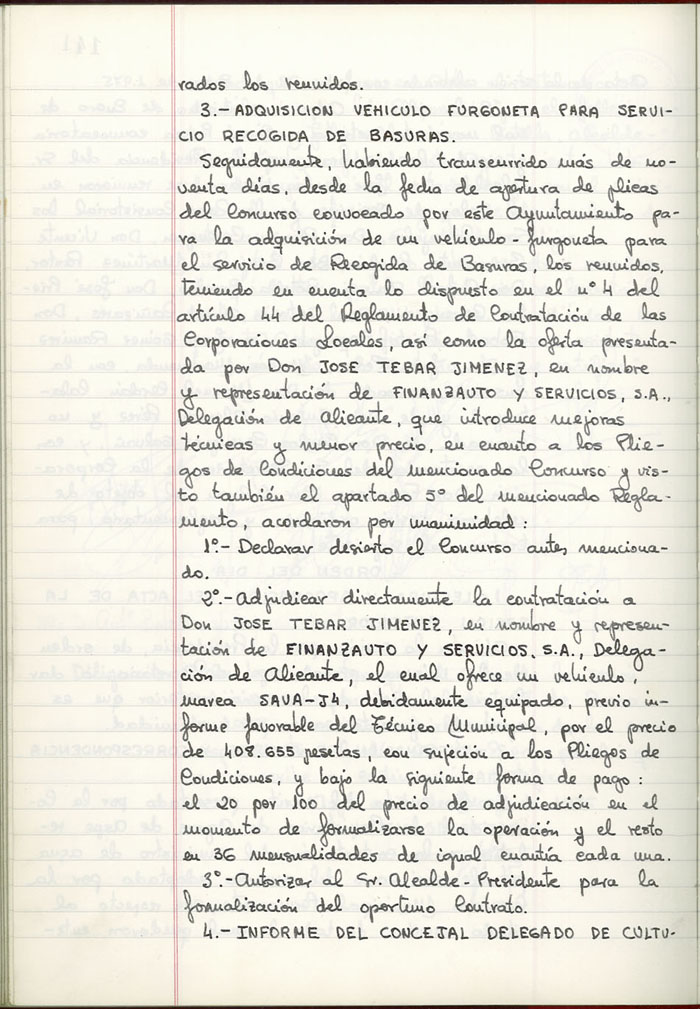 rados los reunidos.
3.- ADQUISICION VEHICULO FURGONETA PARA SERVI-
CIO RECOGIDA DE BASURAS.
Seguidamente, habiendo transcurrido más de no-
venta días, desde la fecha de apertura de plicas
del Concurso convocado por este Ayuntamiento pa-
ra la adquisición de un vehículo-furgoneta para
el servicio de Recogida de Basuras, los reunidos,
teniendo en cuenta lo dispuesto en el nº 4 del
artículo 44 del Reglamento de Contratación de las
Corporaciones Locales, así como la oferta presenta-
da por Don JOSE TEBAR JIMENEZ, en nombre
y representación de FINANZAUTO Y SERVICIOS, S.A.,
Delegación de Alicante, que introduce mejoras
técnicas y menor precio, en cuanto a los Plie-
gos de Condiciones del mencionado Concurso y vis-
to también el apartado 5º del mencionado Regla-
mento, acordaron por unanimidad:
1º.- Declarar desierto el Concurso antes menciona-
do.
2º.- Adjudicar directamente la contratación a
Don JOSE TEBAR JIMENEZ, en nombre y represen-
tación de FINANZAUTO Y SERVICIOS, S.A., Delega-
ción de Alicante, el cual ofrece un vehículo,
marca SAVA-J4, debidamente equipado, previo in-
forme favorable del Técnico Municipal, por el precio
de 408.655 pesetas, con sujeción a los Pliegos de
Condiciones, y bajo la siguiente forma de pago:
el 20 por 100 del precio de adjudicación en el
momento de formalizarse la operación y el resto
en 36 mensualidades de igual cuantía cada una.
3º.- Autorizar al Sr. Alcalde-Presidente para la
formalización del oportuno Contrato.
4.- INFORME DEL CONCEJAL DELEGADO DE CULTU-